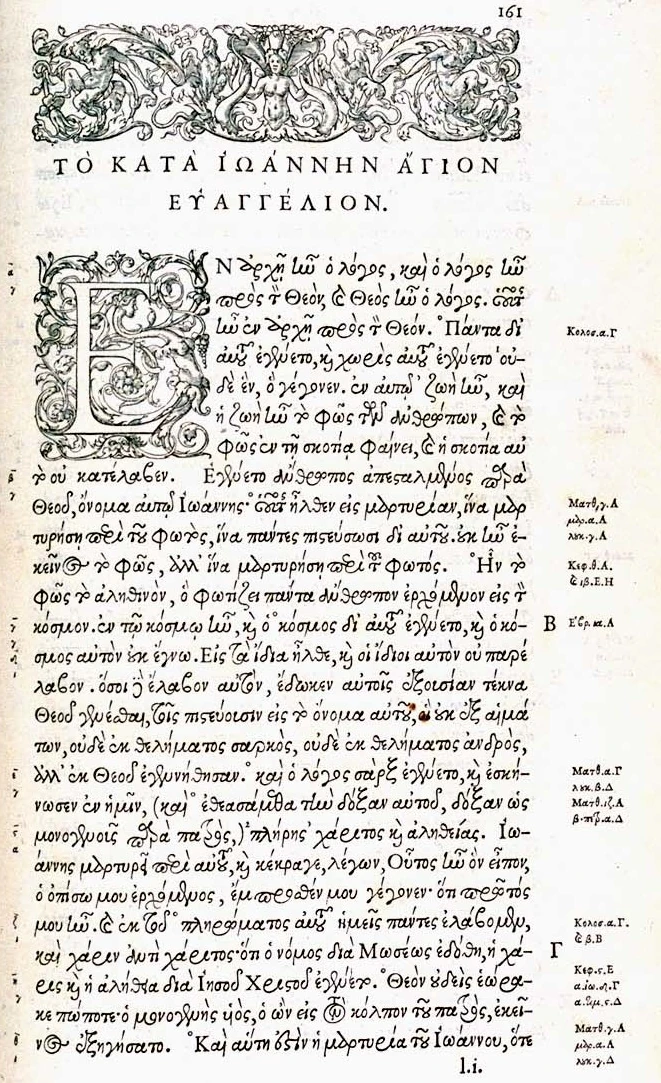 161
ΤῸ ΚΑΤᾺ ἸΩΆΝΝΗΝ ἍΓΙΟΝ
ΕΥ̓ΑΓΓΈΛΙΟΝ.
ΕΝ ἀρχῇ ἦν ὁ λόγος, καὶ ὁ λόγος ἦν
πρὸς τὸν Θεόν, καὶ Θεὸς ἦν ὁ λόγος. οὗτος
ἦν ἐν ἀρχῇ πρὸς τὸν Θεόν. Πάντα δι
αὐτοῦ ἐγένετο, καὶ χωρὶς αὐτοῦ ἐγένετο οὐ-
δὲ ἓν, ὃ γέγονεν. ἐν αὐτῷ ζωὴ ἦν, καὶ
ἡ ζωὴ ἦν τὸ φῶς τῶν ἀνθρώπων, καὶ τὸ
φῶς ἐν τῇ σκοτίᾳ φαίνει, καὶ ἡ σκοτία αὐ
τὸ οὐ κατέλαβεν. Ἐγένετο ἄνθρωπος ἀπεσταλμένος παρὰ
Θεοῦ, ὄνομα αὐτῷ Ἰωάννης· οὗτος ἦλθεν εἰς μαρτυρίαν, ἵνα μαρ
τυρήσῃ περὶ τοῦ φωτὸς, ἵνα πάντες πιστεύσωσι δι αὐτοῦ. οὐκ ἦν ἐ-
κεῖνος τὸ φῶς, ἀλλ' ἵνα μαρτυρήσῃ περὶ τοῦ φωτός. Ἦν τὸ
φῶς τὸ ἀληθινὸν, ὃ φωτίζει πάντα ἄνθρωπον ἐρχόμενον εἰς τὸν
κόσμον. ἐν τῷ κόσμῳ ἦν, καὶ ὁ κόσμος δι αὐτοῦ ἐγένετο, καὶ ὁ κό-
σμος αὐτὸν οὐκ ἔγνω. Εἰς τὰ ἴδια ἦλθε, καὶ οἱ ἴδιοι αὐτὸν οὐ παρέ
λαβον. ὅσοι δὲ ἔλαβον αὐτὸν, ἔδωκεν αὐτοῖς ἐξουσίαν τέκνα
Θεοῦ γενέσθαι, τοῖς πιστεύουσιν εἰς τὸ ὄνομα αὐτοῦ, οἳ οὐκ ἐξ αἱμά
των, οὐδὲ ἐκ θελήματος σαρκὸς, οὐδὲ ἐκ θελήματος ἀνδρὸς,
ἀλλ' ἐκ Θεοῦ ἐγεννήθησαν. καὶ ὁ λόγος σὰρξ ἐγένετο, καὶ ἐσκή-
νωσεν ἐν ἡμῖν, (καὶ ἐθεασάμεθα τὴν δόξαν αὐτοῦ, δόξαν ὡς
μονογενοῦς παρὰ πατρὸς,) πλήρης χάριτος καὶ ἀληθείας. Ἰω-
άννης μαρτυρεῖ περὶ αὐτοῦ, καὶ κέκραγε, λέγων, Οὗτος ἦν ὃν εἶπον,
ὁ ὀπίσω μου ἐρχόμενος, ἔμπροσθέν μου γέγονεν· ὅτι πρῶτός
μου ἦν. καὶ ἐκ τοῦ πληρώματος αὐτοῦ ἡμεῖς πάντες ἐλάβομεν,
καὶ χάριν ἀντὶ χάριτος· ὅτι ὁ νόμος διὰ Μωσέως ἐδόθη, ἡ χά-
ρις καὶ ἡ ἀλήθεια διὰ Ἰησοῦ Χριστοῦ ἐγένετο. Θεὸν οὐδεὶς ἑώρα-
κε πώποτε· ὁ μονογενὴς υἱὸς, ὁ ὢν εἰς τὸν κόλπον τοῦ πατρὸς, ἐκεῖ-
νος ἐξηγήσατο. Καὶ αὕτη ἐστὶν ἡ μαρτυρία τοῦ Ἰωάννου, ὅτε
l.i.
Κολοσ.α.Γ
Ματθ.γ.Α
μαρ.α.Α
λυκ.γ.Α
Κεφ.θ.Α.
καὶ ιβ.Ε.Η
Β
Ἑβρ.ια.Α
Ματθ.α.Γ
λυκ.β.Δ
Ματθ.ιζ.Α
β.πέτρ.α.Δ
Κολοσ.α.Γ.
καὶ β.Β
Γ
Κεφ.ς.Ε
α.ἰω.δ.Γ
α.τιμ.ς.Δ
Ματθ.γ.Α
μαρ.α.Α
λυκ.γ.Δ